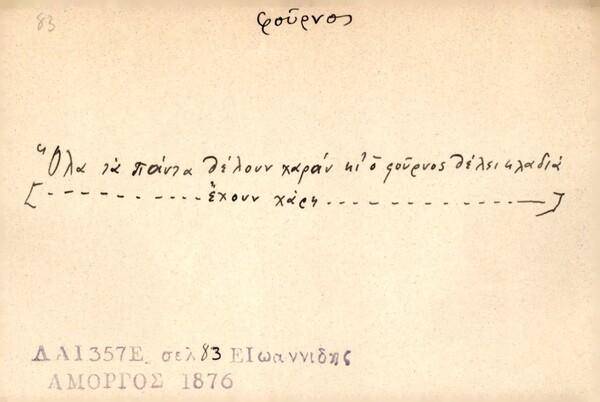 83
φοῦρνος
Ὅλα τὰ πάντα θέλουν χαράν κι' ὁ φοῦρνος θέλει κλαδιά
[- - - - - - - - - - ἔχουν χάρη - - - - - - - - - -]
ΔΑΙ357Ε σελ 83 ΕΙωαννιδης
ΑΜΟΡΓΟΣ 1876